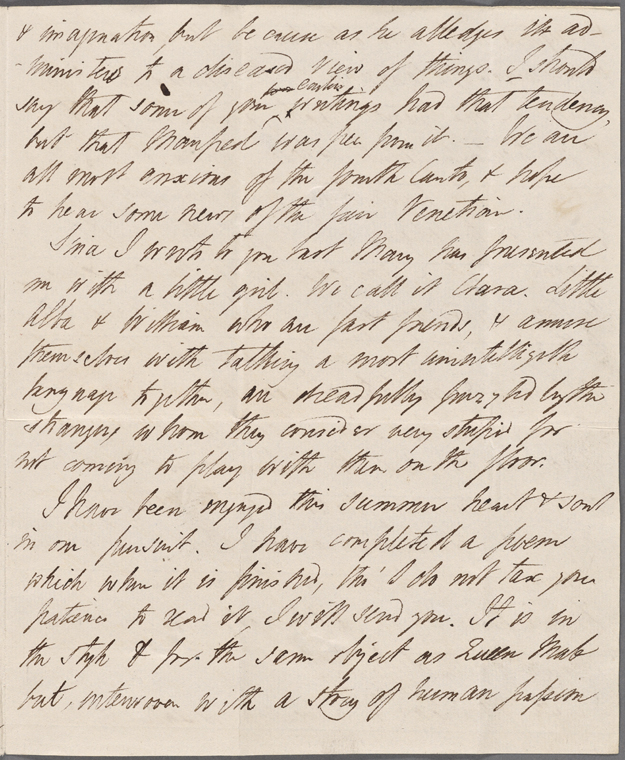 & imagination but because as he alledges its ad-
-ministers to a diseased view of things. I should
say that some of your earlier writings had that tendency,
but that Manfred was free from it. — We are
all most anxious of the fourth Canto, & hope
to hear some news of the fair Venetian.
Since I wrote to you last Mary has presented
me with a little girl. We call it Clara. Little
Alba & William who are fast friends, & amuse
themselves with talking a most unintelligible
language together, are dreadfully puzzled by the
stranger whom they consider very stupid for
not coming to play with them on the floor.
I have been engaged this summer heart & soul
in one pursuit. I have completed a poem
which when it is finished, tho' I do not tax your
patience to read it, I will send you. It is in
the style & for the same object as Queen Mab
but, interwoven with a story of human passion